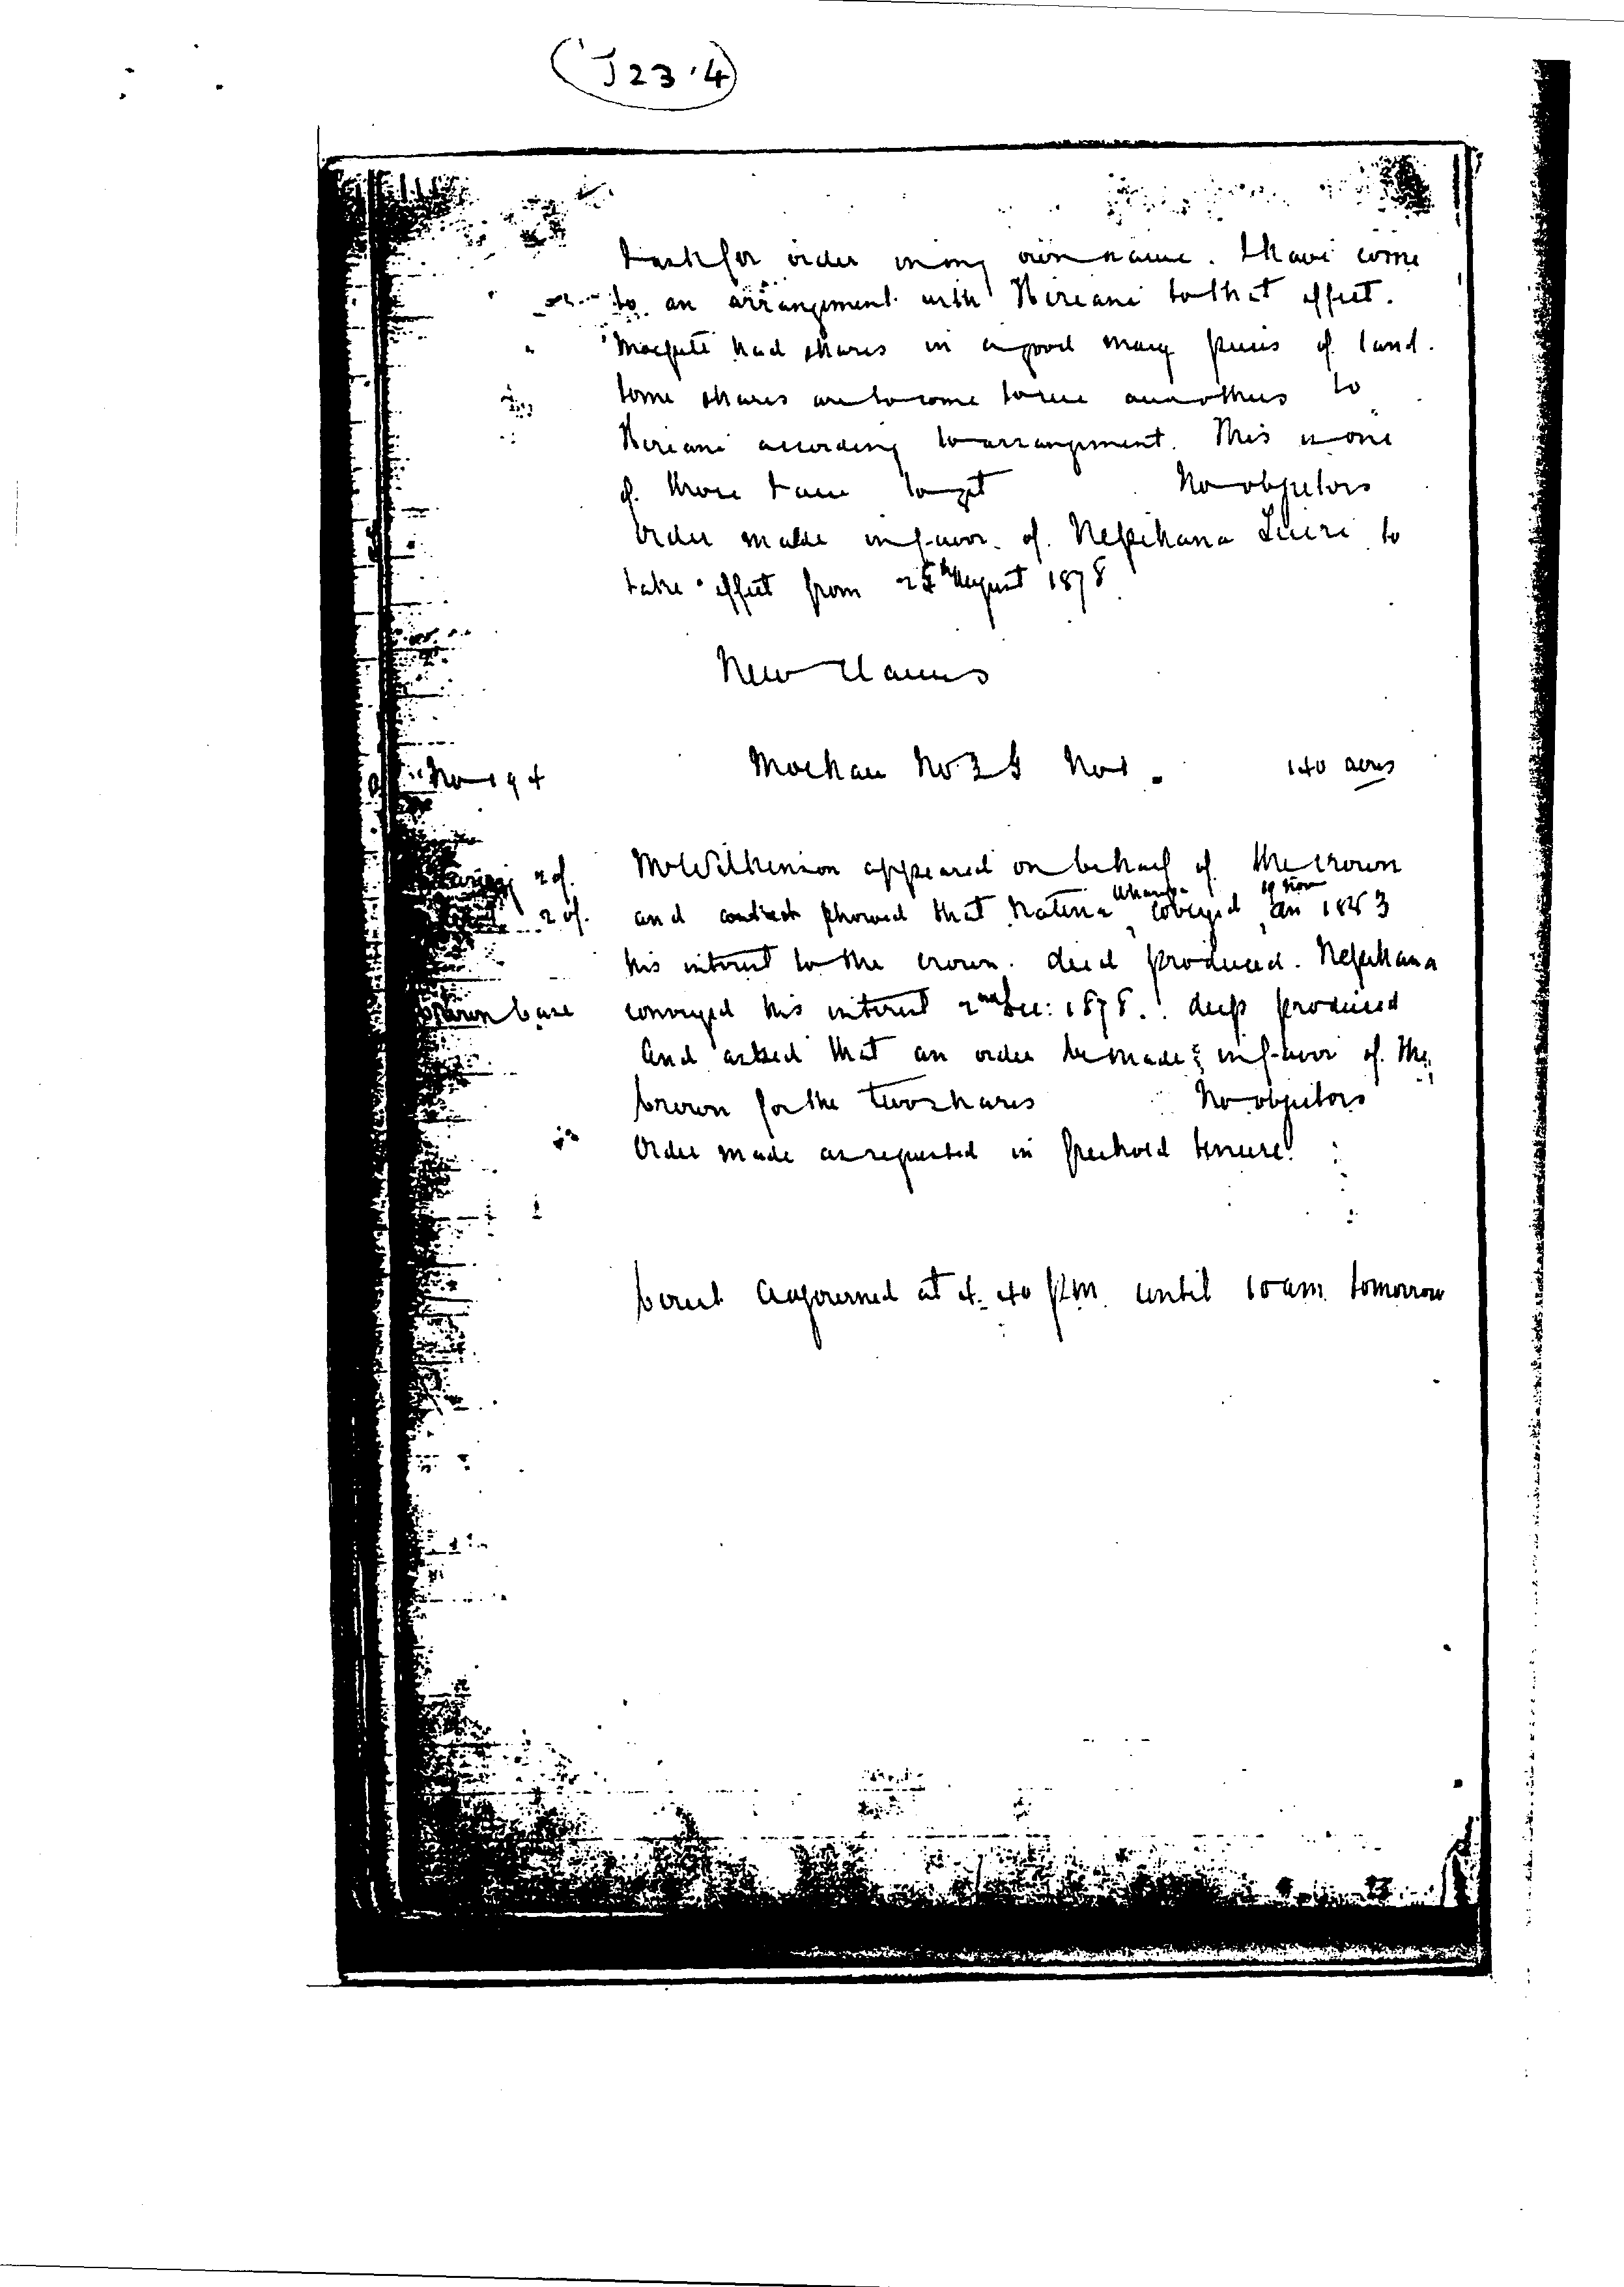 (J 23.4)
I ask for order in my own name. I have come
to an arrangement with Hireani to that effect.
had shares in a good many pieces of land.
Some shares are to come to me and others to
Hireani according to arrangement. This is one
of those I am to get No objectors
Order made in favor of Nepihana to
take effect from August 1878
New Claims
No 194 Moehau No 1. 140 acres
2 of. Mr Wilkinson appeared on behalf of the crown
2 of. and showed that Natina in 1883
his interest to the crown. deed produced. Nepihana
Crown Case conveyed his interest 2nd Dec: 1878. produced
And asked that an order be made in favor of the
Crown for the two shares No objectors
Order made as requested in freehold tenure.
Court adjourned at 4.40 P.M. until 10 am tomorrow